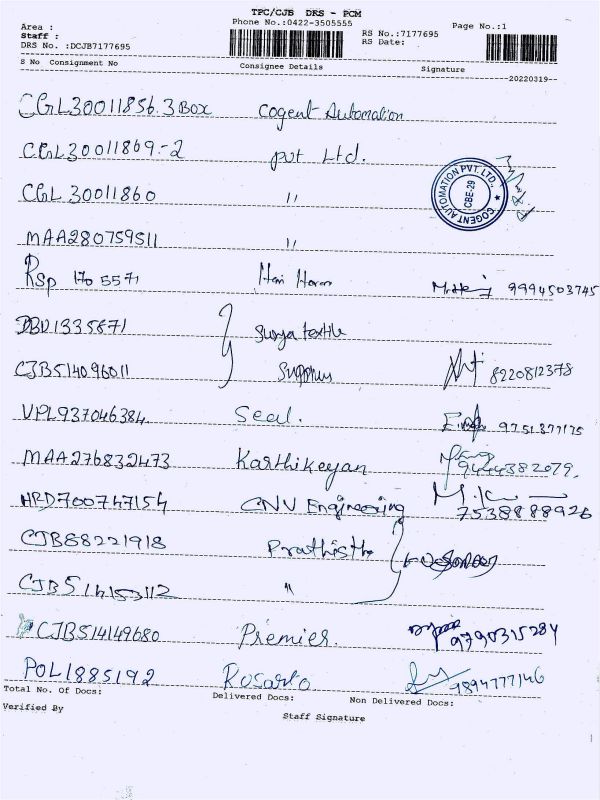 TPC/CJB DRS - PCM
Area :
Phone No.:0422-3505555
Page No.:1
Staff :
RS No.:7177695
DRS No. :DCJB7177695
RS Date:
S No Consignment No Consignee Details Signature
20220319
CGL30011856.3 Box Cogent Automation
CGL30011869-2 pvt Ltd.
CGL30011860 "
COGENT AUTOMATION PVT. LTD.,
CBE-29
MAA280759511 "
Rsp 170 5571 9994503745
DBD1335871 Surya textile
CJB514096011 8220812378
VPL937046384 Seal. 9751877175
MAA276832473 Karthikeyan 9444382079.
HRD700747154 CNV Engineering 7538888926
CJB88221918 Prathistha
CJB514153112 "
CJB514149680 Premier. 9790315284
POL1885192 Rosario 9894777146
Total No. Of Docs: Delivered Docs: Non Delivered Docs:
Verified By Staff Signature